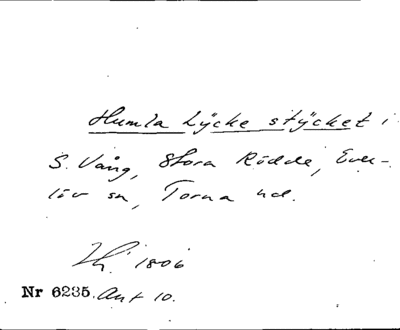 Humla Lÿcke stÿcket i
S. Vång, Stora Rödde, Ever-
löv sn, Torna hd.
1806
Nr 6235. Akt 10.